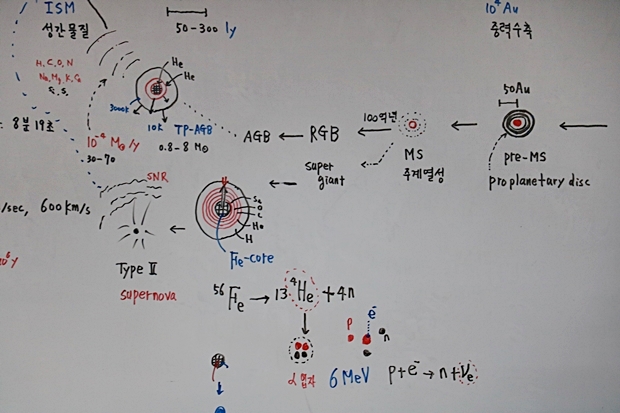 ISM
성간물질
H, C, O, N
Na, Mg, K, Ca
50-300 ly
10⁴ Au
중력수축
He
He
3000k
10k
TP-AGB
0.8-8 M⊙
8분 19초
10⁻⁴ M⊙/y
30-70
AGB ← RGB
100억년
MS
주계열성
50Au
pre-MS
proplanetary disc
super
giant
SNR
/sec, 600km/s
Si
O
C
He
H
Fe-core
Type II
supernova
⁵⁶Fe → 13 ⁴He + 4n
α입자
6 MeV
p
e⁻
n
p+e⁻ → n+νe